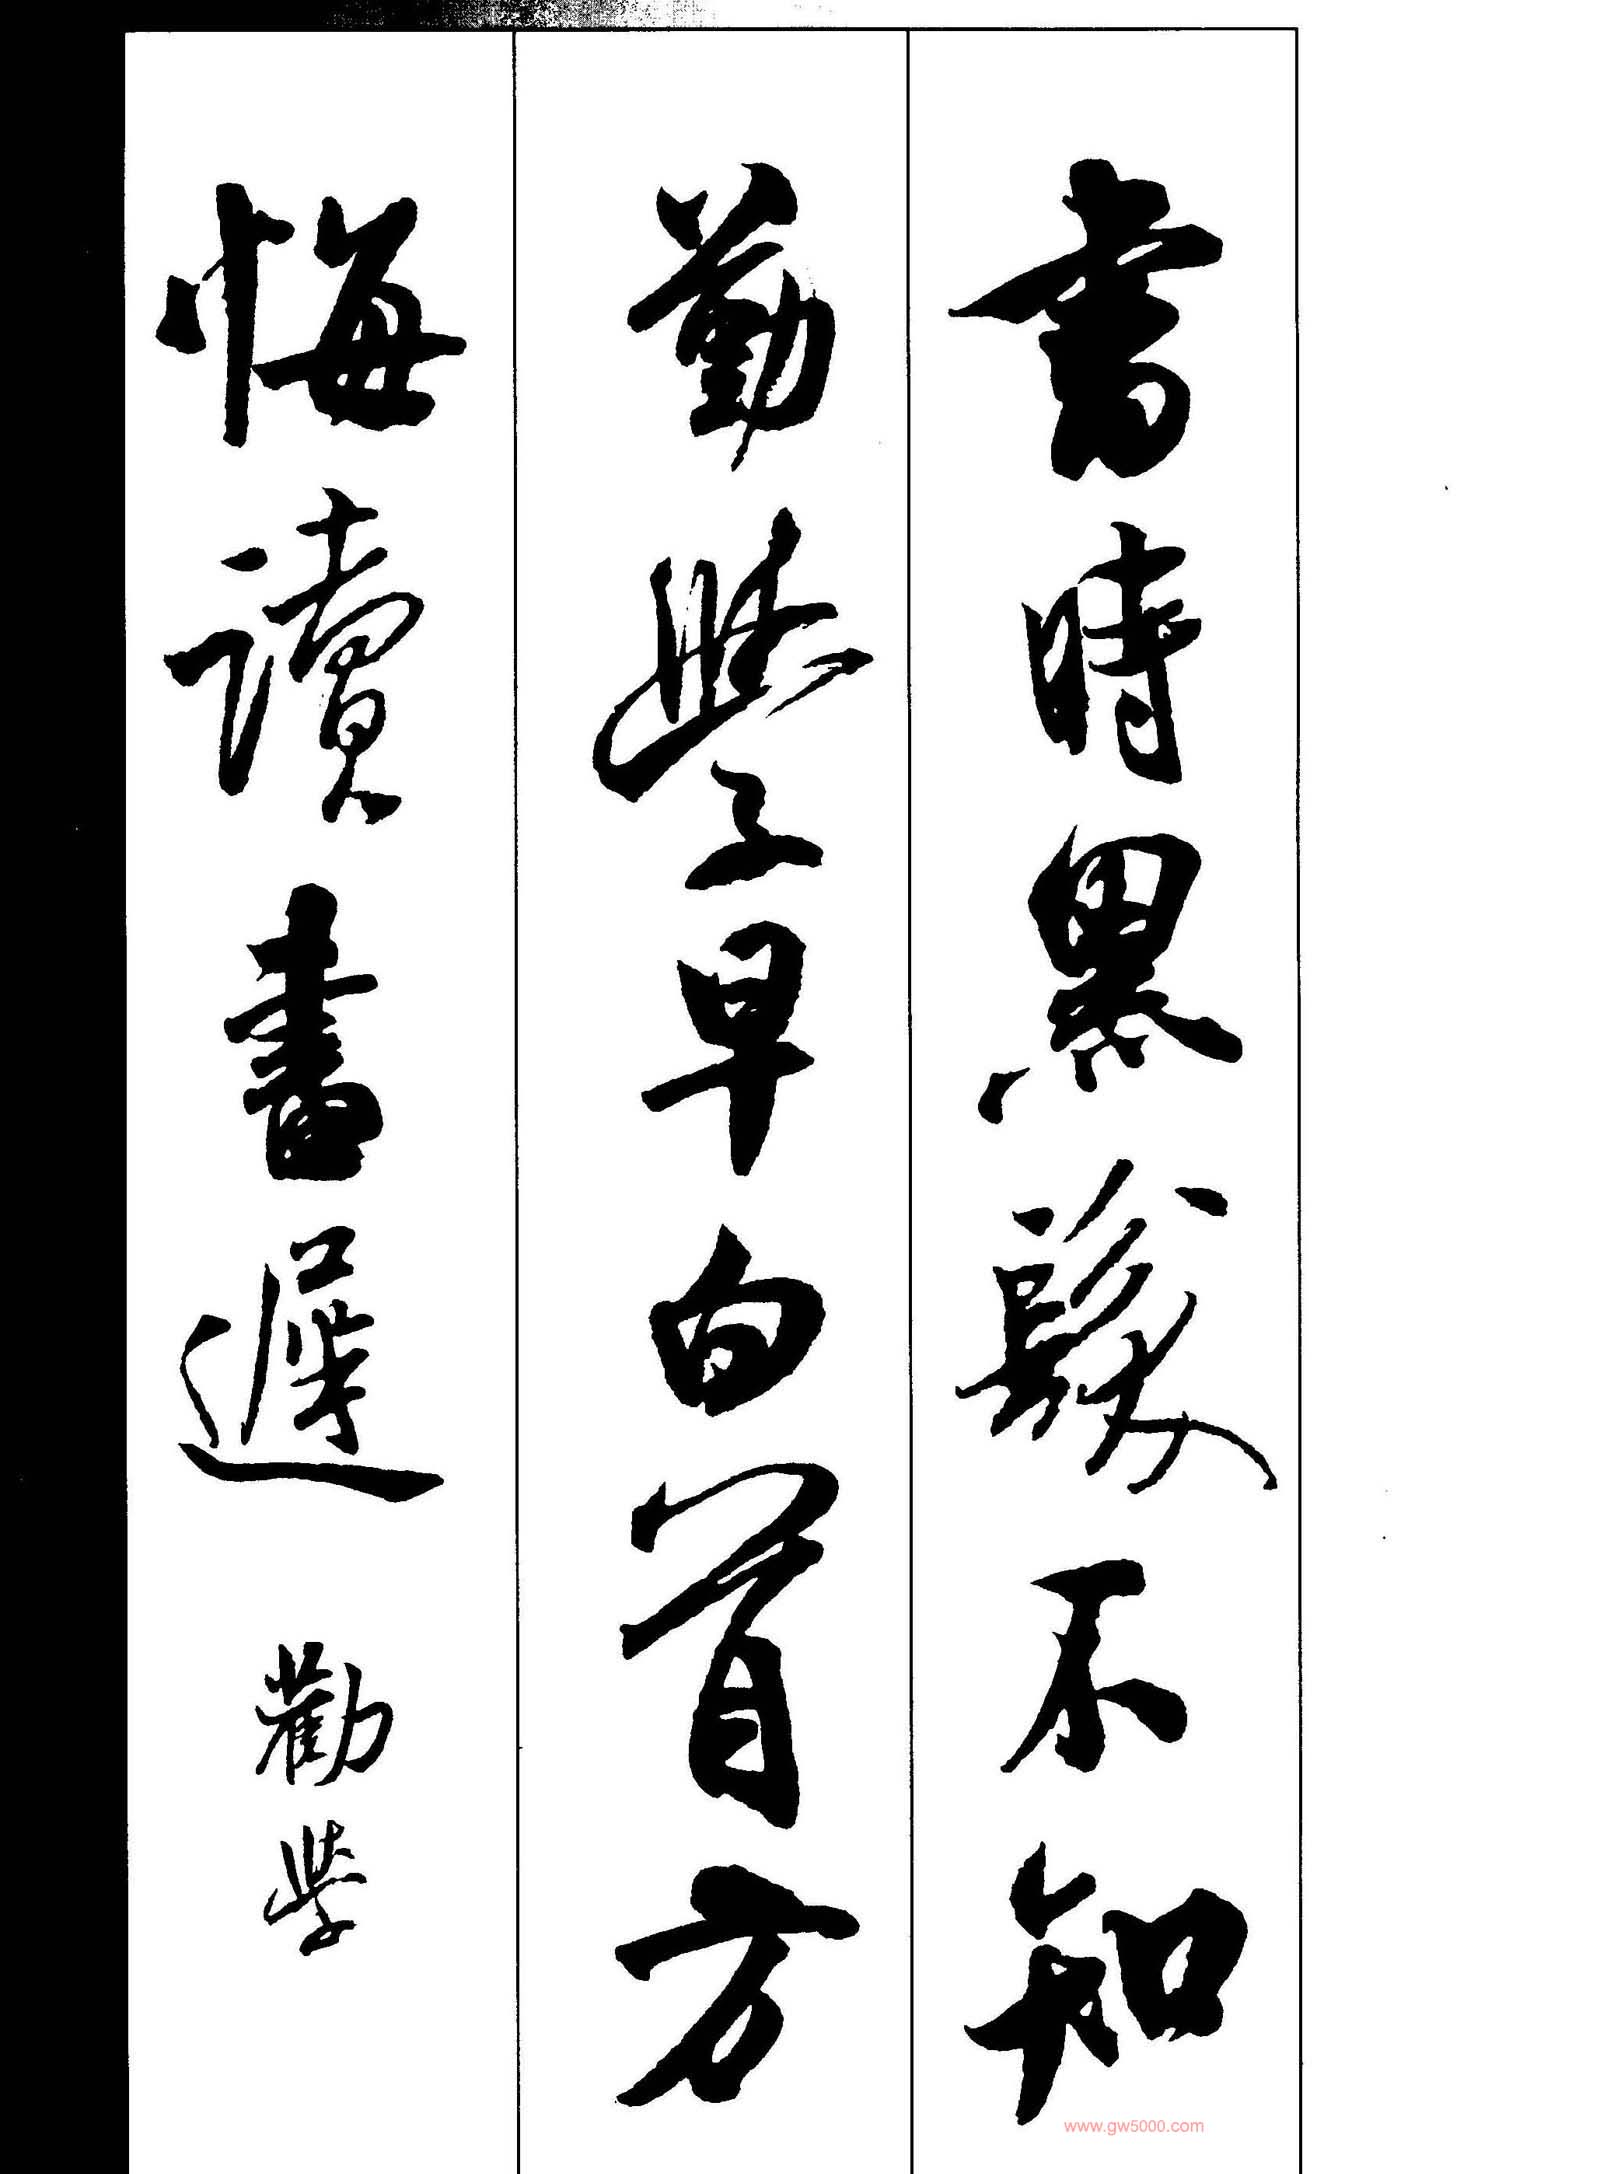 書時黑髮不知
勤學早白首方
悔讀書遲 勸學
www.gw5000.com